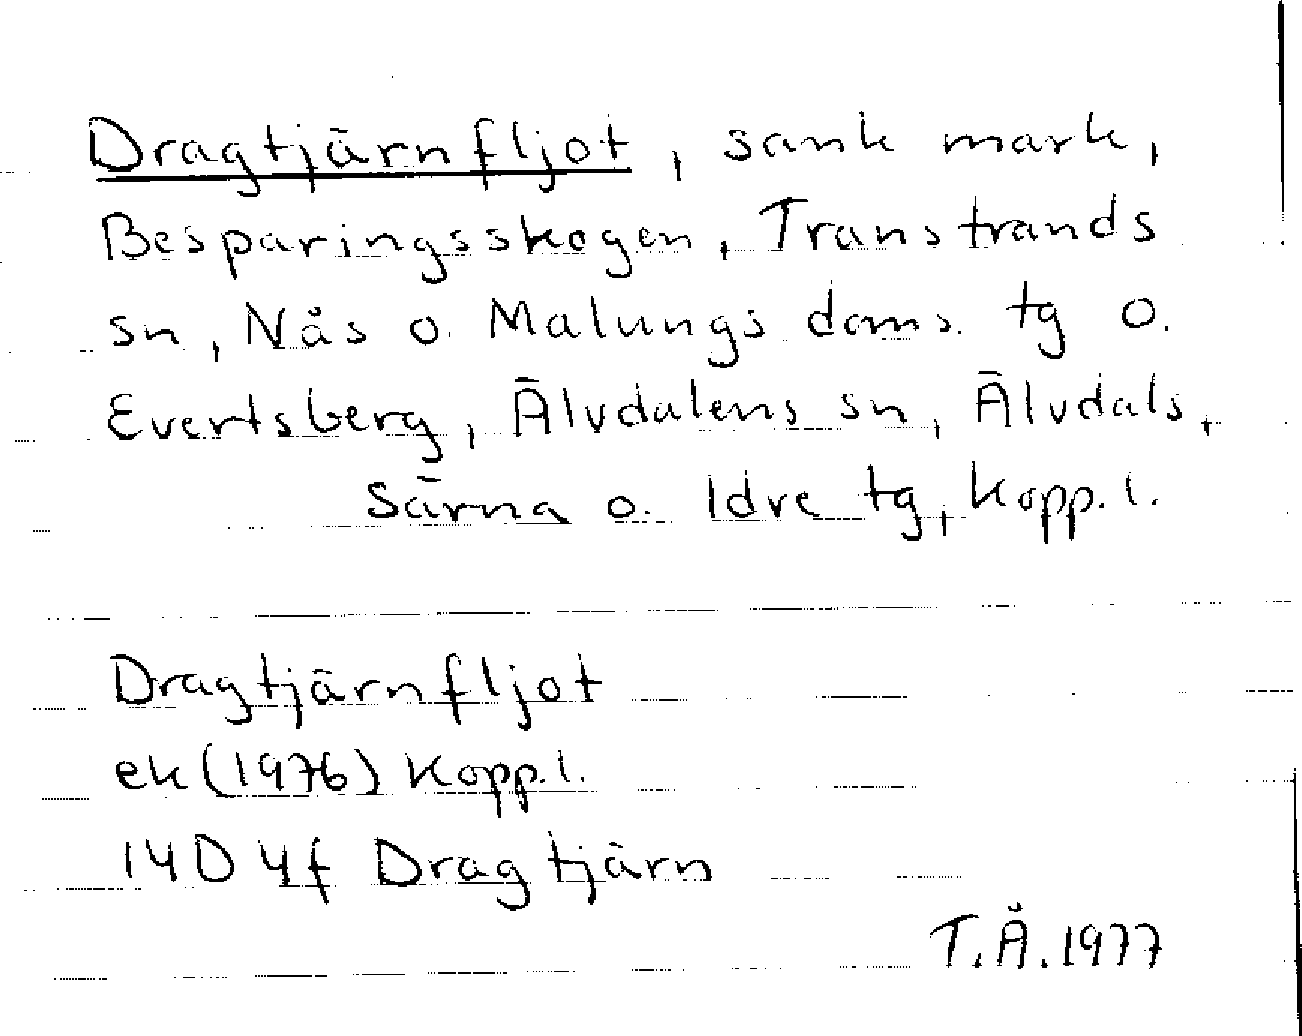 Dragtjärnfljot, sank mark,
Besparingsskogen, Transtrands
sn, Nås o. Malungs doms. tg o.
Evertsberg, Älvdalens sn, Älvdals,
Särna o. Idre tg, Kopp. l.
Dragtjärnfljot
ek (1976) Kopp. l.
14D 4f Dragtjärn
T.Å. 1977